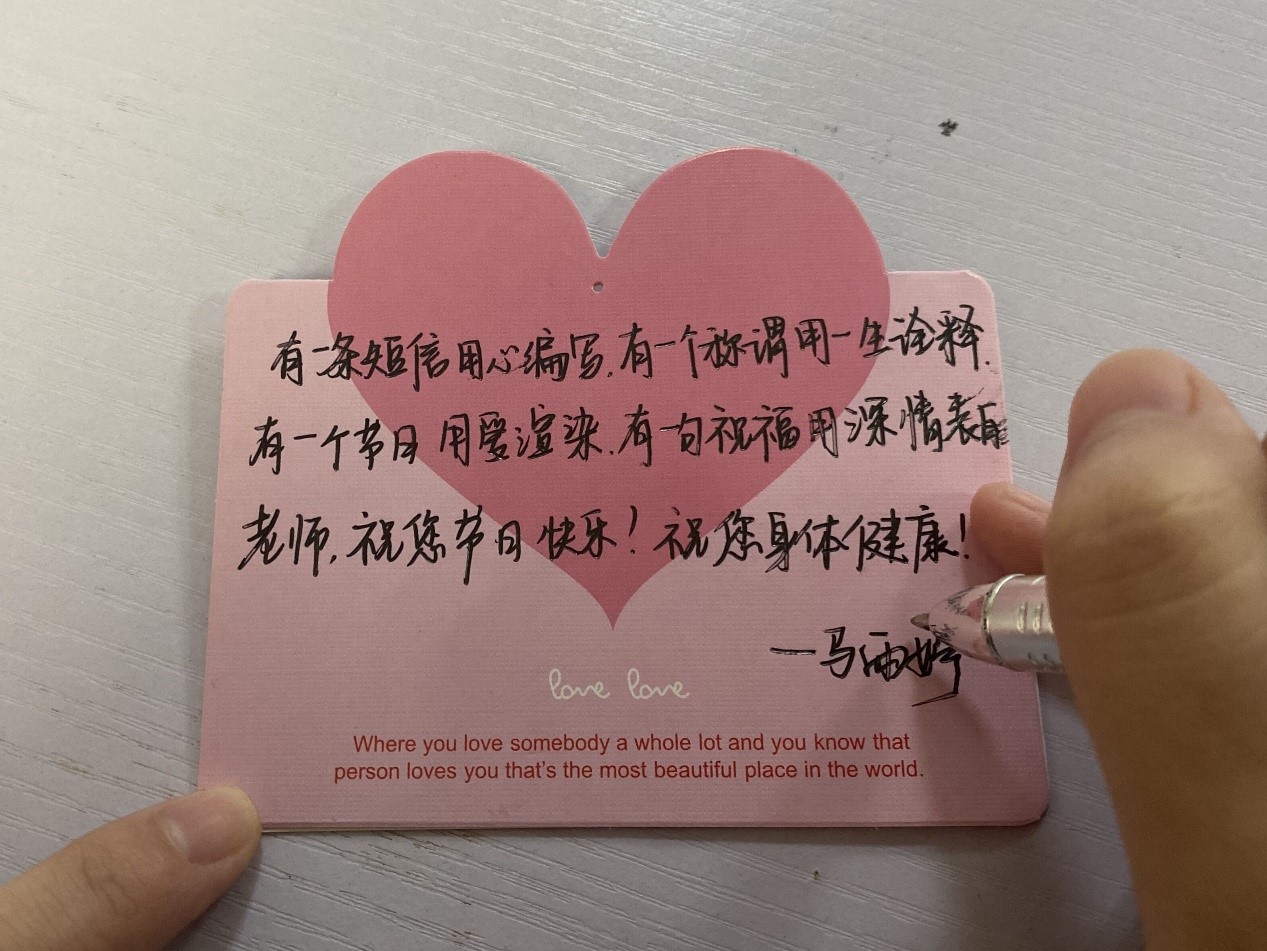 有一条短信用心编写.有一个称谓用一生诠释.
有一个节日用爱渲染.有一句祝福用深情表
老师,祝您节日快乐!祝您身体健康!
一马雨婷
love love
Where you love somebody a whole lot and you know that
person loves you that's the most beautiful place in the world.